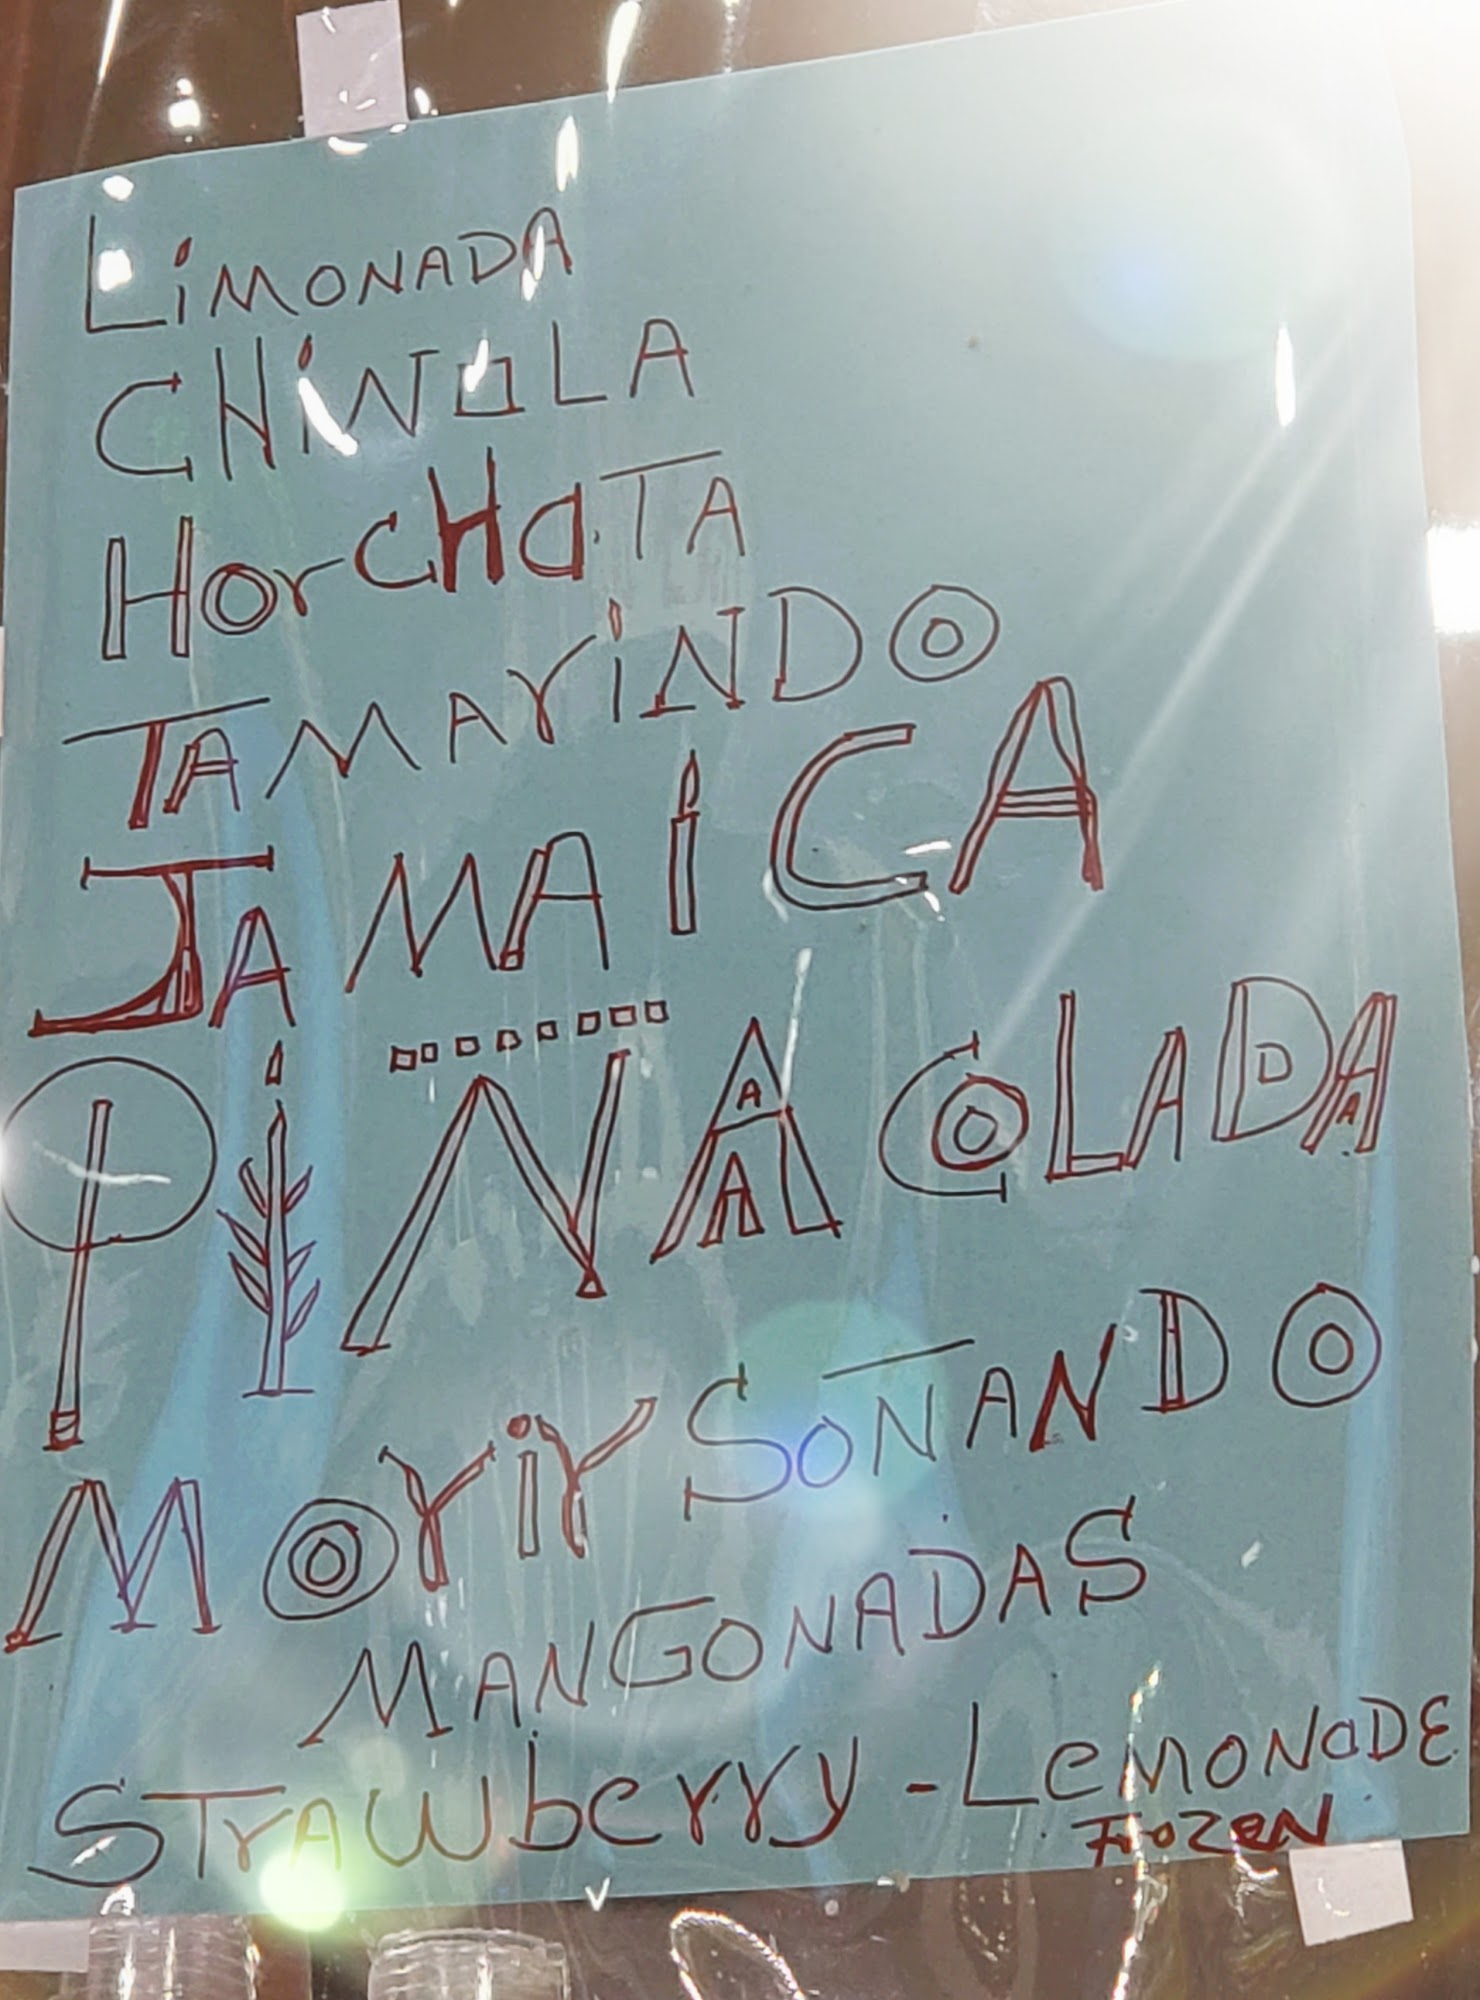 LiMONADA
CHiNOLA
HorcHaTA
TAMArINDO
JAMAICA
PiÑA COLADA
MoriR SOÑANDO
MANGONADAS
STrAwberry - LeMONaDE
FrOZEN